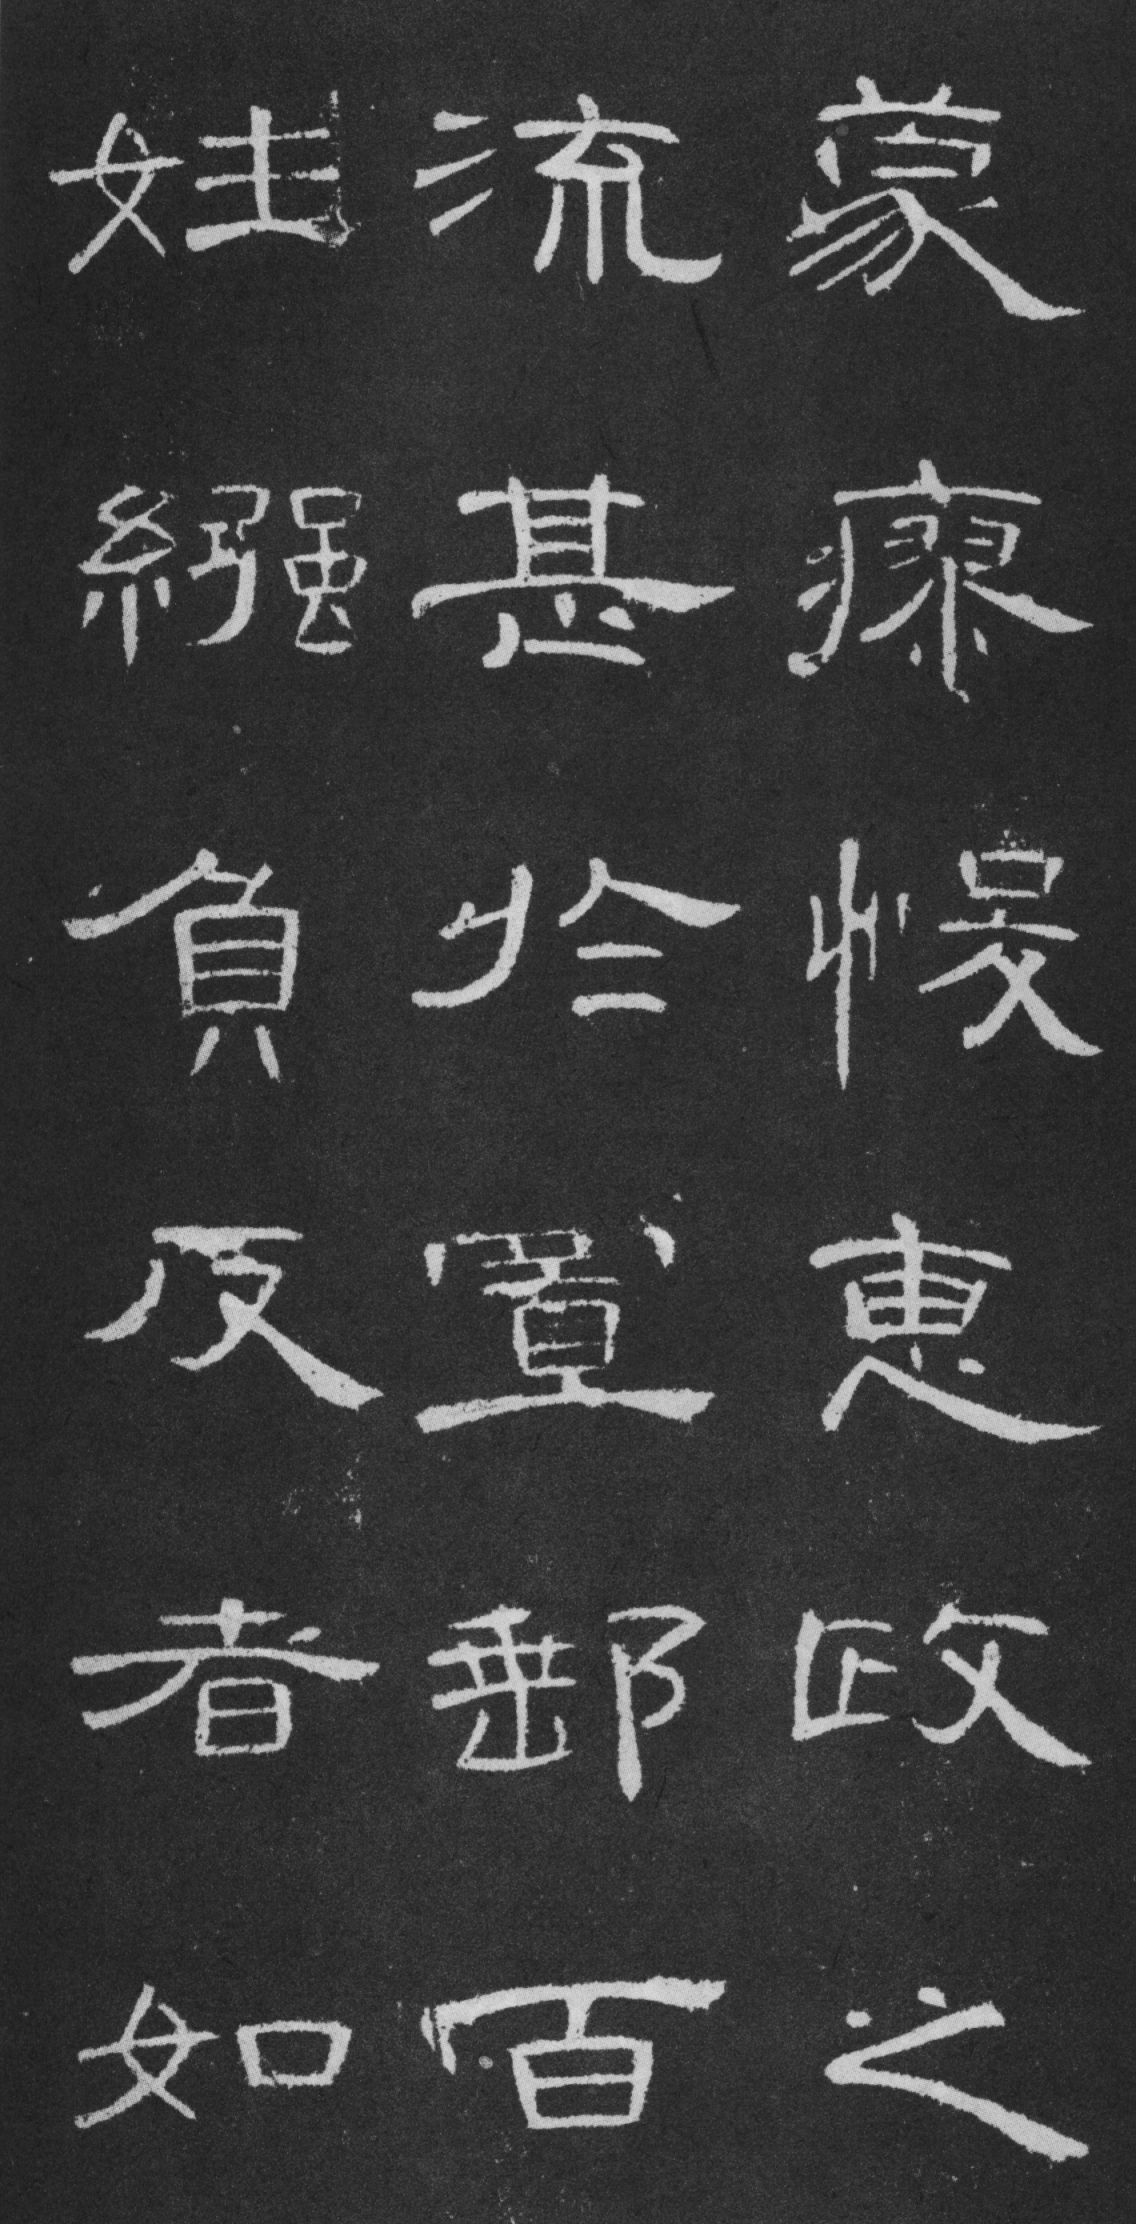 蒙瘝㥄惠政之
流甚於置郵百
姓繦負反者如